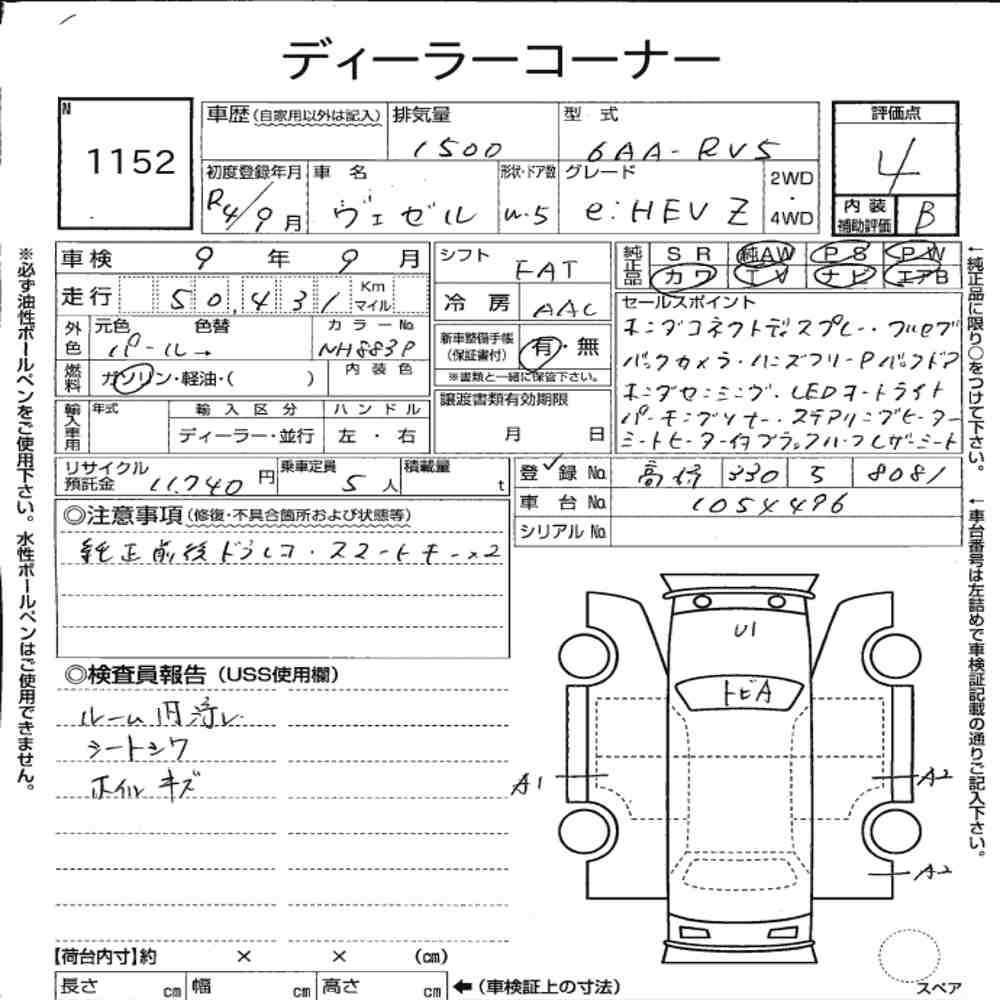 ディーラーコーナー
N
1152
車歴 (自家用以外は記入)
排気量
1500
型 式
6AA-RV5
評価点
4
初度登録年月
R4/9月
車 名
ヴェゼル
形状・ドア数
W・5
グレード
e:HEV Z
2WD
・
4WD
内装
補助評価
B
車検 9 年 9 月
シフト
FAT
純正品
SR 純AW PS PW
カワ TV ナビ エアB
走行 50,431 Km
マイル
冷房 AAC
セールスポイント
ホンダコネクトディスプレー・フルセグ
バックカメラ・ハンズフリーPバックドア
ホンダセンシング・LEDオートライト
パーキングソナー・ステアリングヒーター
シートヒーター付ブラックハーフレザーシート
外色
元色 色替
パール→
カラーNo.
NH883P
新車整備手帳
(保証書付)
有・無
※書類と一緒に保管下さい。
燃料
ガソリン・軽油・( )
内装色
輸入車用
年式
輸入区分
ディーラー・並行
ハンドル
左・右
譲渡書類有効期限
月 日
リサイクル
預託金 11,740円
乗車定員
5人
積載量
t
登録No. 330 5 8081
車台No. 1054496
シリアルNo.
◎注意事項 (修復・不具合箇所および状態等)
純正前後ドラレコ・スマートキー×2
◎検査員報告 (USS使用欄)
ルーム内汚レ
シートシワ
ホイルキズ
U1
トビA
A1
A2
A2
【荷台内寸】約 × × (cm)
長さ cm 幅 cm 高さ cm ←(車検証上の寸法)
スペア
※必ず油性ボールペンをご使用下さい。水性ボールペンはご使用できません。
←純正品に限り○をつけて下さい。
←車台番号は左詰めで車検証記載の通りご記入下さい。